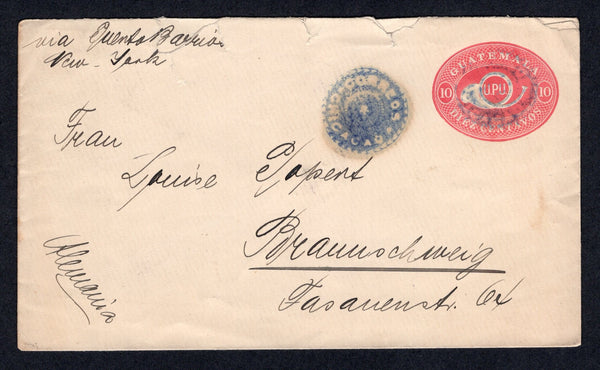 via Puerto Barrios
New-York
GUATEMALA
10 UPU 10
DIEZ CENTAVOS
Frau
Louise
Braunschweig
Fasanenstr. 64
Alemania